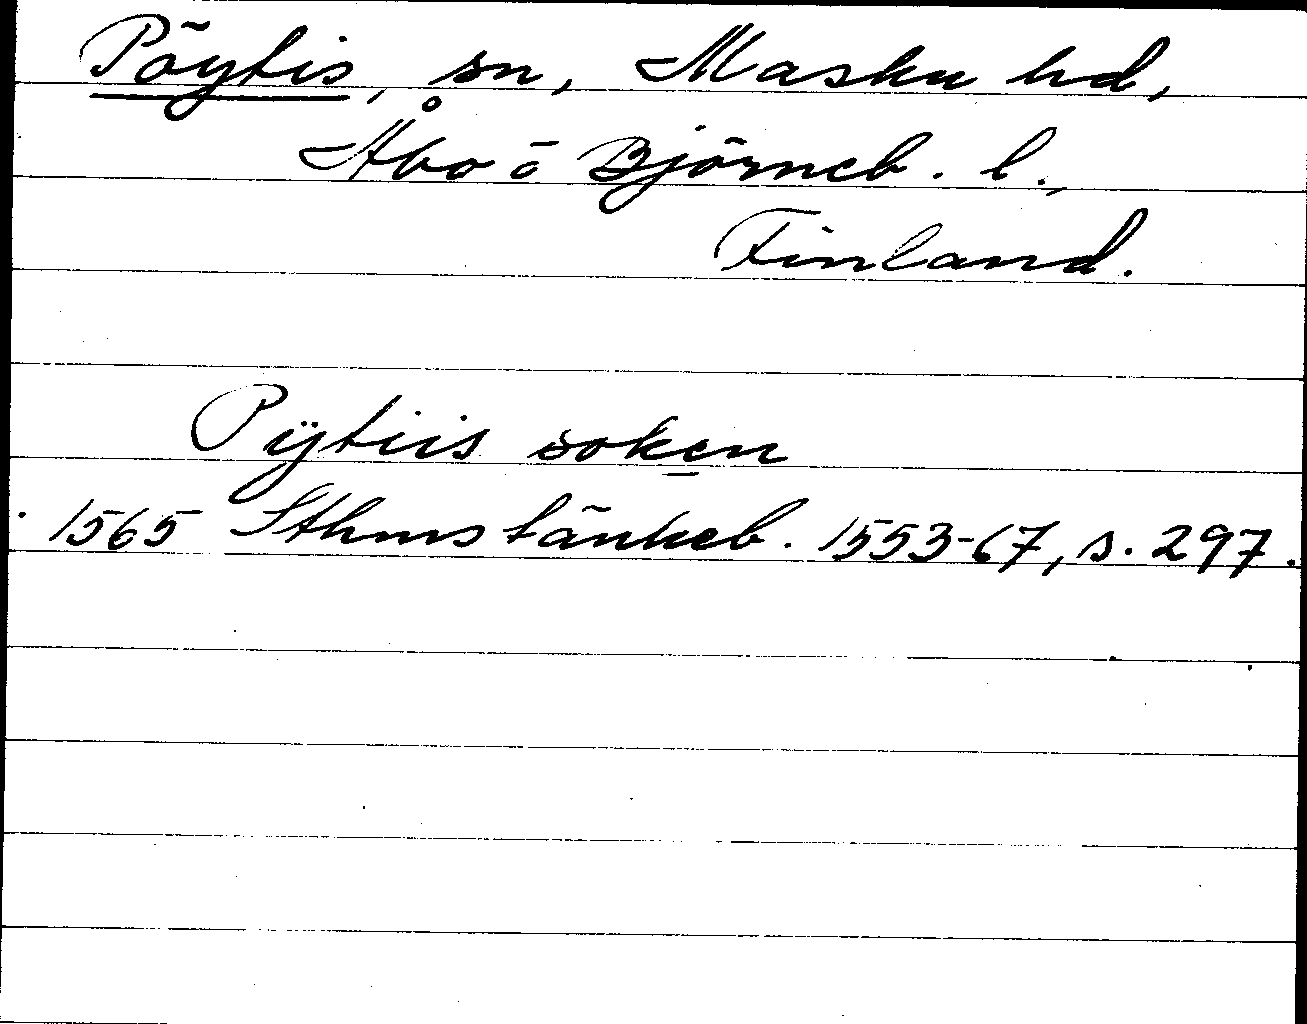 Pöytis, sn, Masku hd,
Åbo o Björneb. l.,
Finland.
Pÿtiis soken
1565 Sthms tänkeb. 1553-67, s. 297.